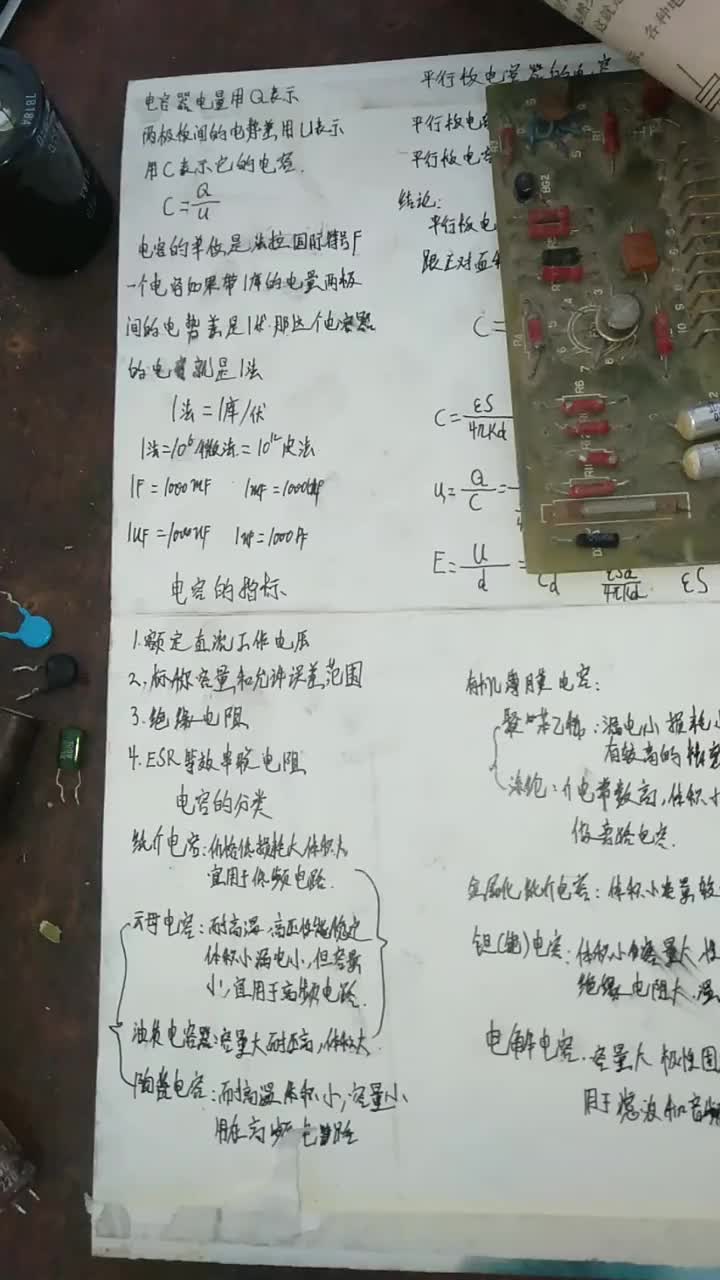 电容器电量用Q表示
两极板间的电势差用U表示
用C表示它的电容.
C=Q/U
电容的单位是法拉国际符号F
一个电容如果带1库的电量两极
间的电势差是1伏.那这个电容器
的电容就是1法
1法=1库/伏
1法=10⁶微法=10¹²皮法
1F=1000mF
1UF=1000nF
电容的指标
1.额定直流工作电压
2.标称容量和允许误差范围
3.绝缘电阻
4.ESR等效串联电阻
电容的分类
纸介电容:价格低损耗大体积大
宜用于低频电路.
云母电容:耐高温.高压性能稳定
体积小漏电小,但容量
小,宜用于高频电路.
油浸电容器:容量大耐压高,体积大
陶瓷电容:耐高温体积小,容量小
用在高频电路
平行板电容器的电容
平行板电
平行板电
结论:
平行板电
跟正对面
C=
C=εS/4πKd
U=Q/C=
E=U/d=
εSd/4πKd
εS
有机薄膜电容:
聚苯乙烯:漏电小损耗小
有较高的
涤纶:介电常数高,体积小
做旁路电容.
金属化纸介电容:体积小容量较
钽(铌)电容:体积小容量大
绝缘电阻大
电解电容.容量大极性固
用于滤波和音频
各种电
BG2
R4
R6
78184